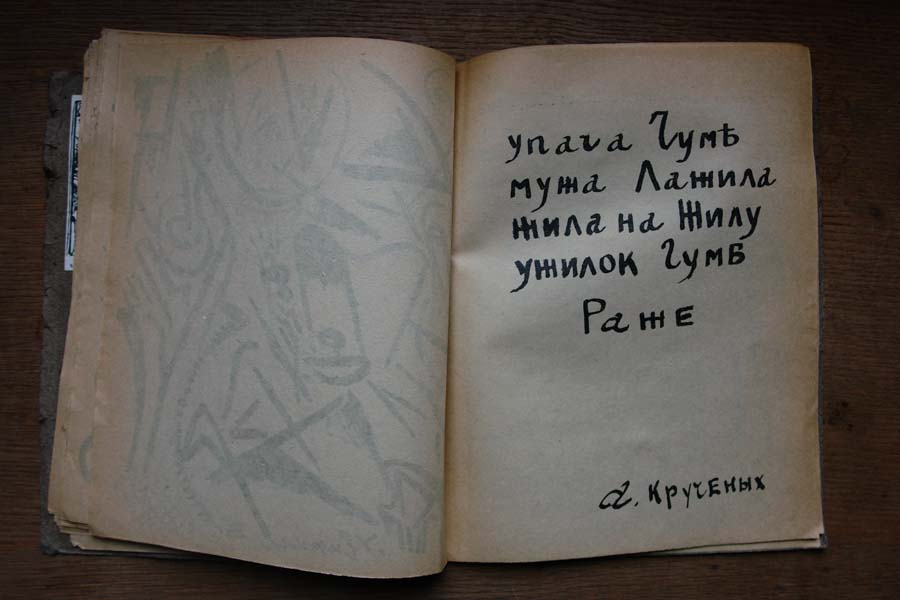 упача Гумѣ
мужа Лажила
жила на Жилу
ужилок Гумб
Раже
а. Крученых